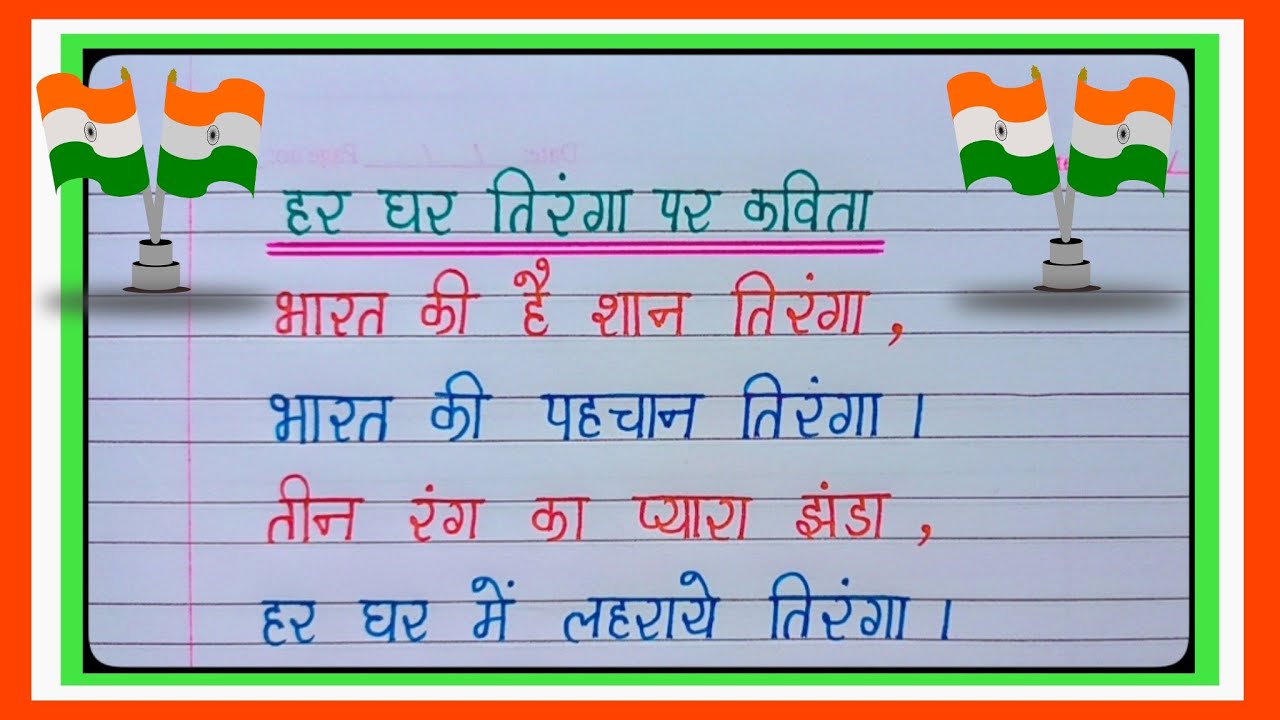 Date: / / Page no:
हर घर तिरंगा पर कविता
भारत की है शान तिरंगा,
भारत की पहचान तिरंगा।
तीन रंग का प्यारा झंडा,
हर घर में लहराये तिरंगा।